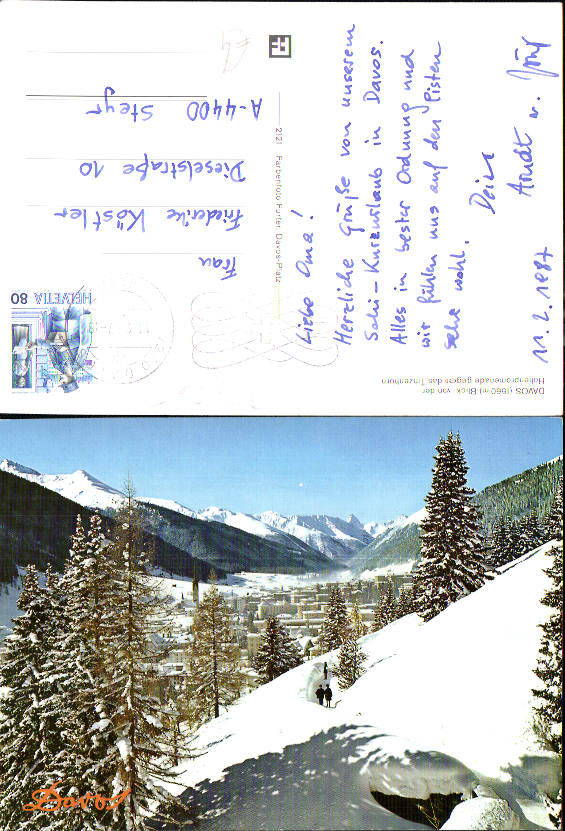 DAVOS (1560 m) Blick von der
Hohenpromenade gegen das Tinzenhorn
Liebe Oma!
Herzliche Grüße von unserem
Schi-Kurzurlaub in Davos.
Alles in bester Ordnung und
wir fühlen uns auf den Pisten
sehr wohl.
Deine
Arndt u.
11.2.1987
2121 Farbenfoto Furter, Davos-Platz
HELVETIA 80
Frau
Friederike Köstler
Dieselstraße 10
A-4400 Steyr
Davos